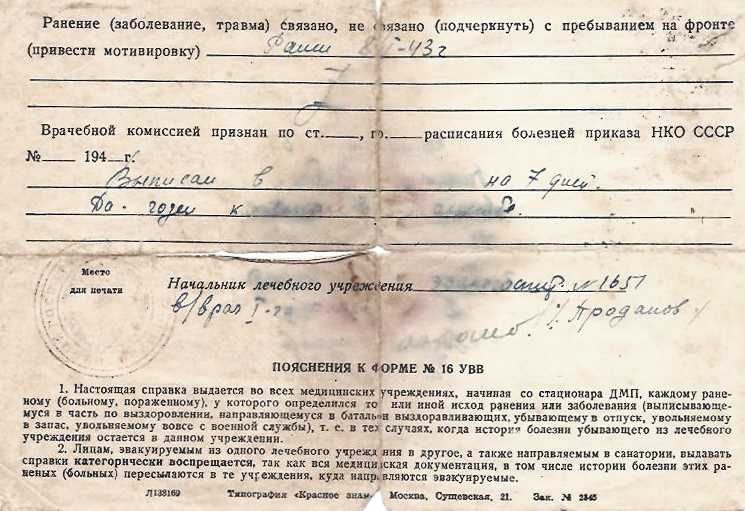 Ранение (заболевание, травма) связано, не связано (подчеркнуть) с пребыванием на фронте
(привести мотивировку)
Врачебной комиссией признан по ст. , гр. расписания болезней приказа НКО СССР
№ 194 г.
Выписан в на 7 дней.
годен к
Место
для печати
Начальник лечебного учреждения №1651
в/врач I-
Проданов
ПОЯСНЕНИЯ К ФОРМЕ № 16 УВВ
1. Настоящая справка выдается во всех медицинских учреждениях, начиная со стационара ДМП, каждому ране-
ному (больному, пораженному), у которого определился тот или иной исход ранения или заболевания (выписывающе-
муся в часть по выздоровлении, направляющемуся в батальон выздоравливающих, убывающему в отпуск, увольняемому
в запас, увольняемому вовсе с военной службы), т. е. в тех случаях, когда история болезни убывающего из лечебного
учреждения остается в данном учреждении.
2. Лицам, эвакуируемым из одного лечебного учреждения в другое, а также направляемым в санатории, выдавать
справки категорически воспрещается, так как вся медицинская документация, в том числе истории болезни этих ра-
неных (больных) пересылаются в те учреждения, куда направляются эвакуируемые.
Л138169 Типография «Красное знамя» Москва, Сущевская, 21. Зак. № 2345